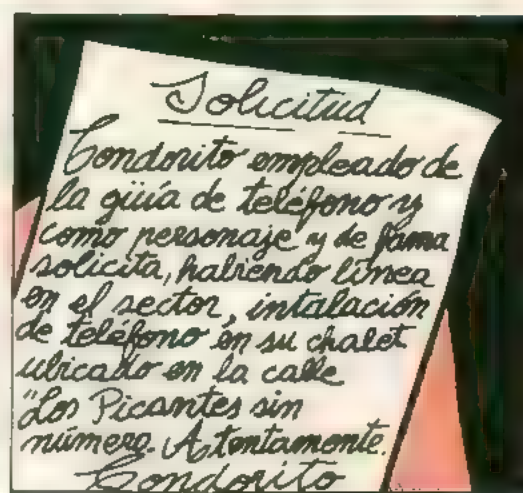 Solicitud
Condorito empleado de
la güia de teléfono y
como personaje y de fama
solicita, habiendo línea
en el sector, intalación
de teléfono en su chalet
ubicado en la calle
"Los Picantes sin
número. Atentamente.
Condorito